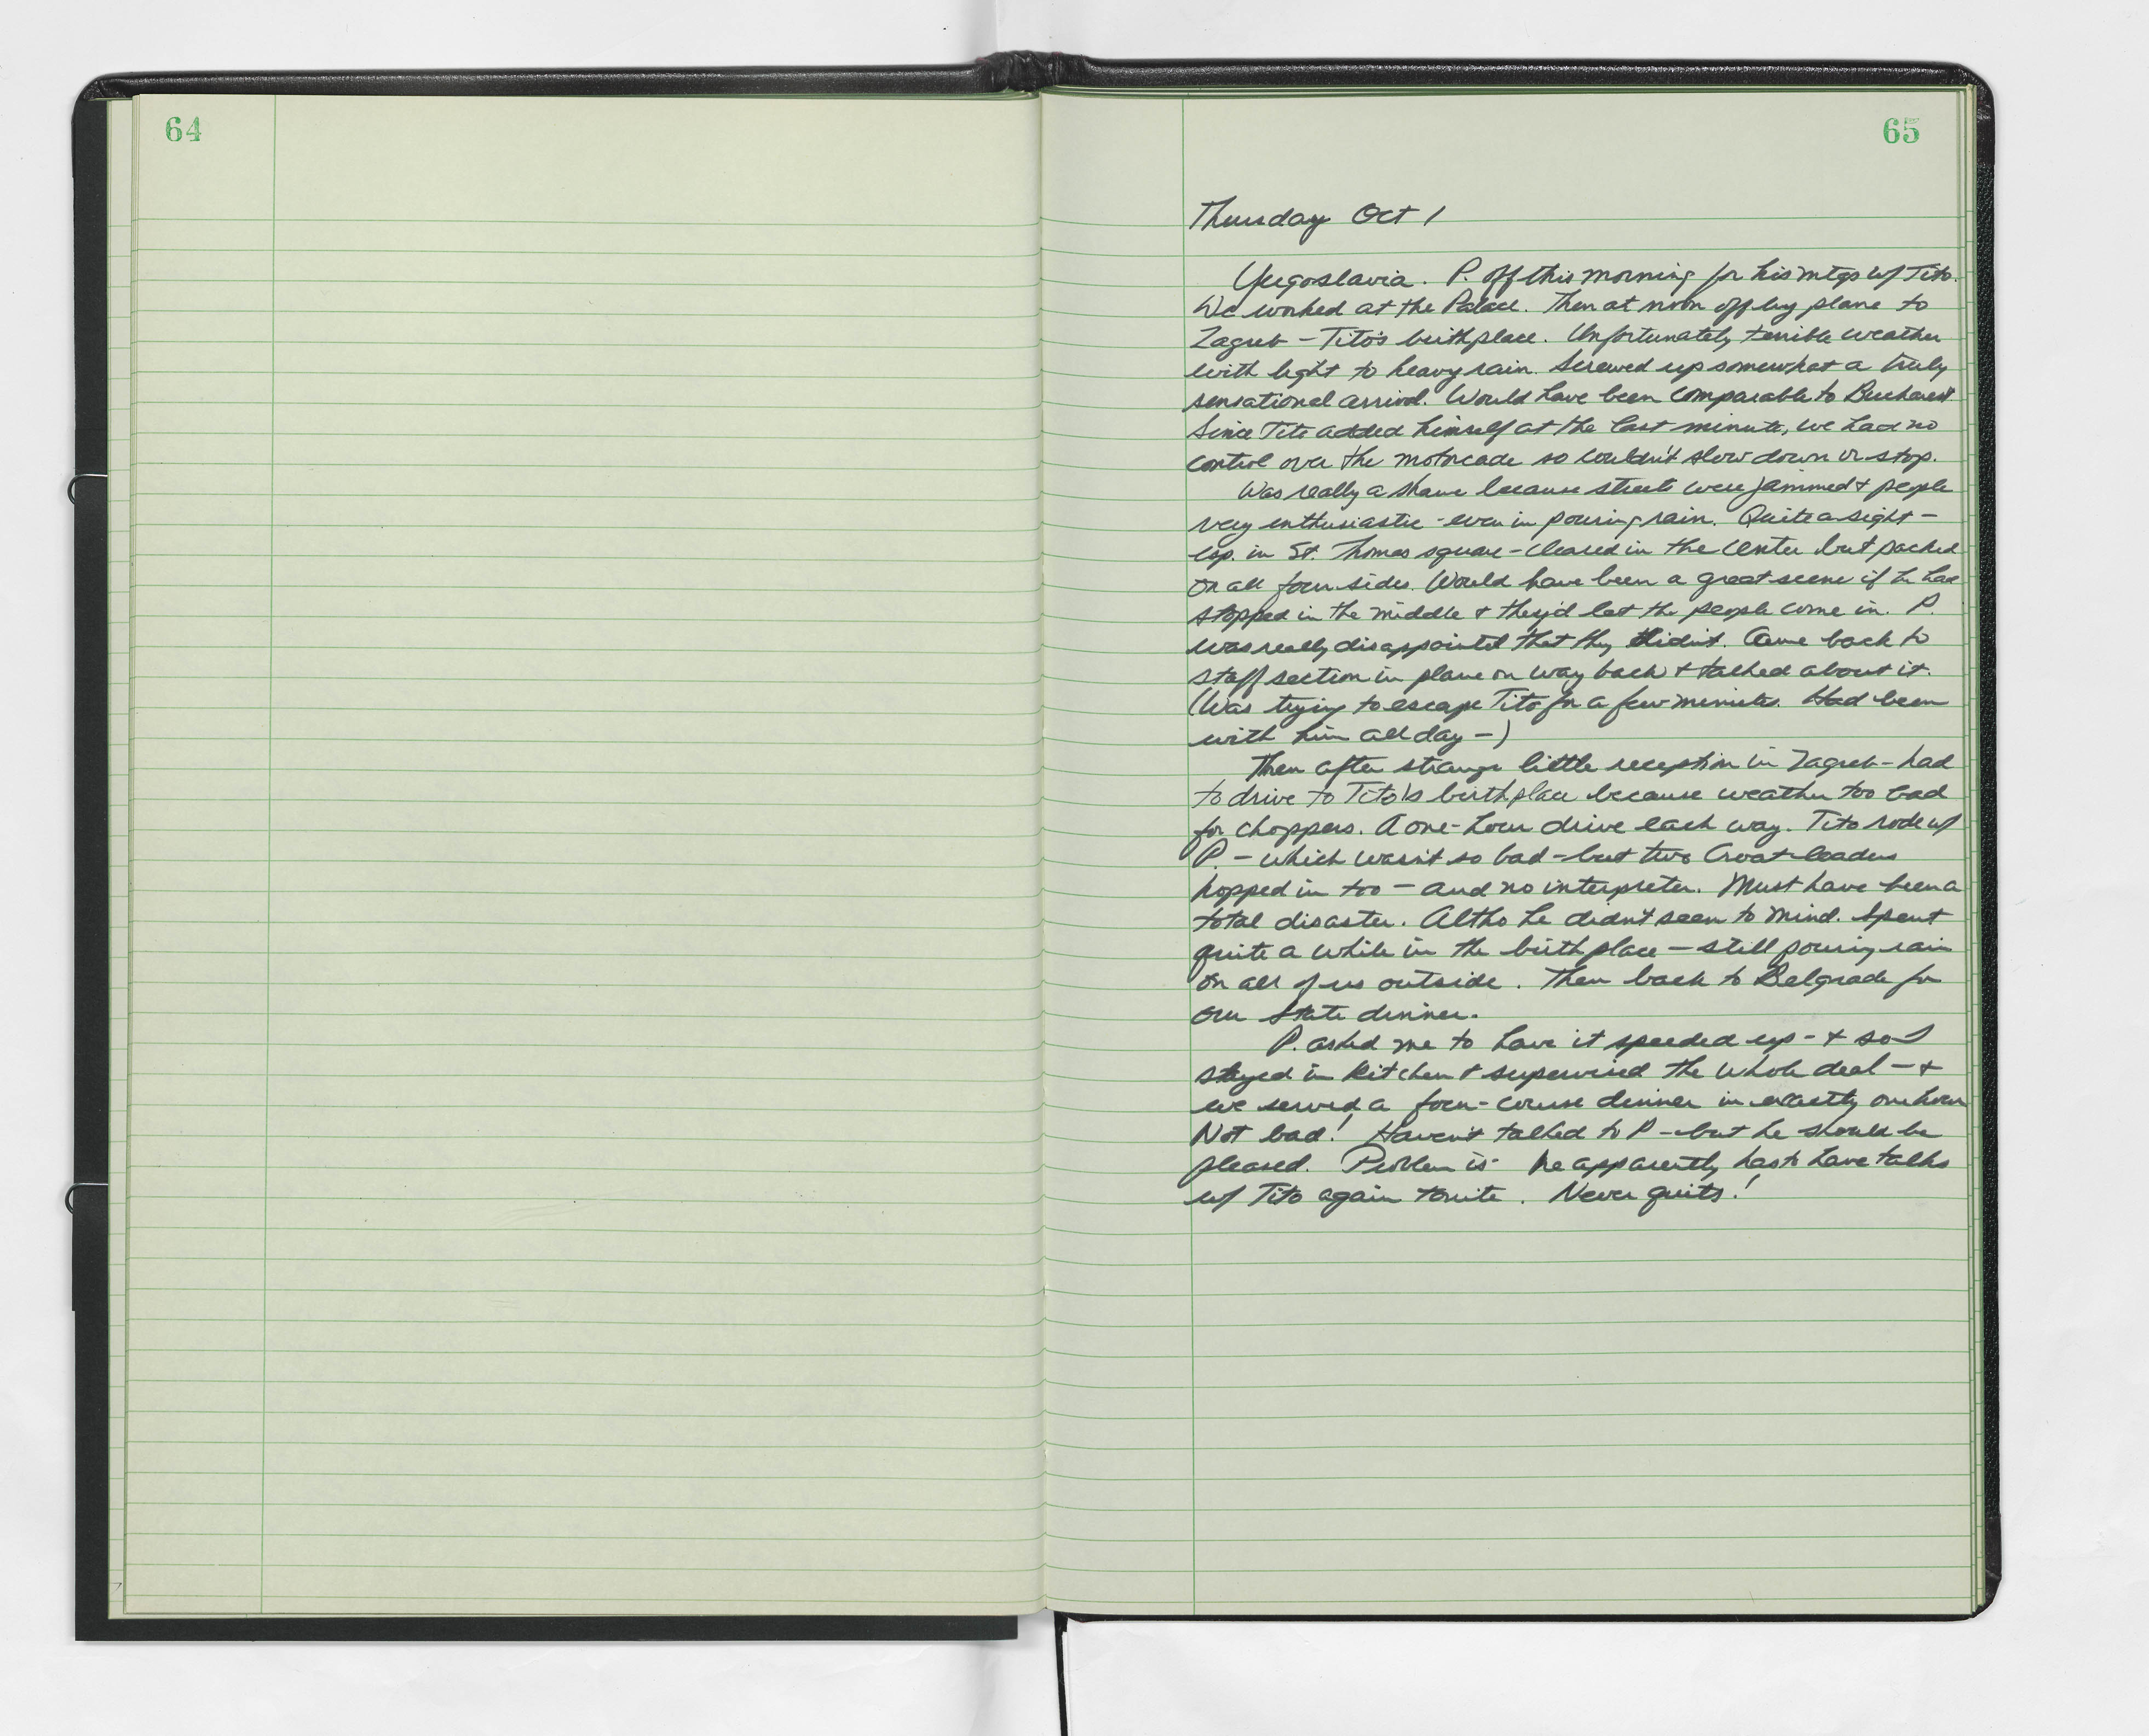 64
65
Thursday Oct 1
Yugoslavia. P. off this morning for his mtgs w/ Tito.
We worked at the Palace. Then at noon off by plane to
Zagreb - Tito's birthplace. Unfortunately terrible weather
with light to heavy rain. Screwed up somewhat a truly
sensational arrival. Would have been comparable to Bucharest.
Since Tito added himself at the last minute, we had no
control over the motorcade so couldn't slow down or stop.
Was really a shame because streets were jammed & people
very enthusiastic - even in pouring rain. Quite a sight -
esp. in St. Thomas square - cleared in the center but packed
on all four sides. Would have been a great scene if he had
stopped in the middle & they'd let the people come in. P.
was really disappointed that they didn't. Came back to
staff section in plane on way back & talked about it.
(Was trying to escape Tito for a few minutes. Had been
with him all day -)
Then after strange little reception in Zagreb - had
to drive to Tito's birthplace because weather too bad
for choppers. A one-hour drive each way. Tito rode w/
P - which wasn't so bad - but two Croat leaders
hopped in too - and no interpreter. Must have been a
total disaster. Altho he didn't seem to mind. Spent
quite a while in the birthplace - still pouring rain
on all of us outside. Then back to Belgrade for
our State dinner.
P. asked me to have it speeded up - & so I
stayed in kitchen & supervised the whole deal - &
we served a four-course dinner in exactly one hour
Not bad! Haven't talked to P - but he should be
pleased. Problem is - he apparently has to have talks
w/ Tito again tonite. Never quits!